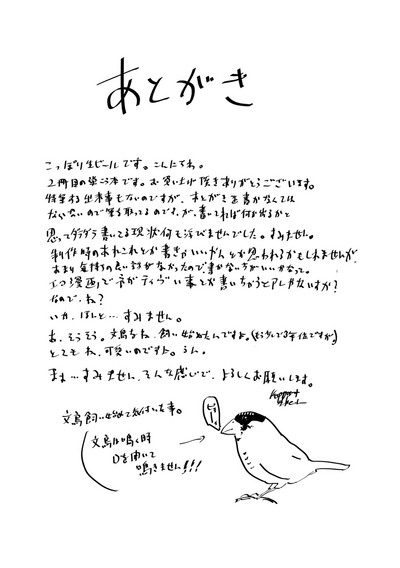 あとがき
こっぽり生ビールです。こんにちわ。
2冊目の単行本です。お買い上げ頂きありがとうございます。
特筆する出来事もないのですが、あとがきを書かなくては
ならないので筆を取ってるのですが、書いてれば何か出るかと
思ってダラダラ書いてる現状何も浮びませんでした。すみません。
制作時のあれこれとか書きゃいいやん とか思われるかもしれませんが、
あまり気持の良い話がなかったので書かない方がいいかなって。
エロ漫画でネガティヴい事とか書いちゃうとアレじゃないすか?
なので、ね?
いや、ほんと…すみません。
あ、そうそう。文鳥をね、飼い始めたんですよ。(もう少しで3年位ですが)
とても ね、可愛いのですよ。うん。
まぁ…すみません、そんな感じで、よろしくお願いします。
文鳥飼い始めて気付いた事。
文鳥は鳴く時
口を開いて
鳴きません!!!